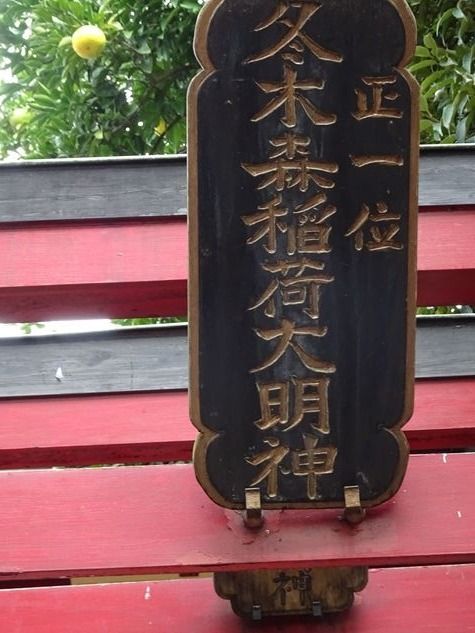 正一位
冬木森稲荷大明神
神